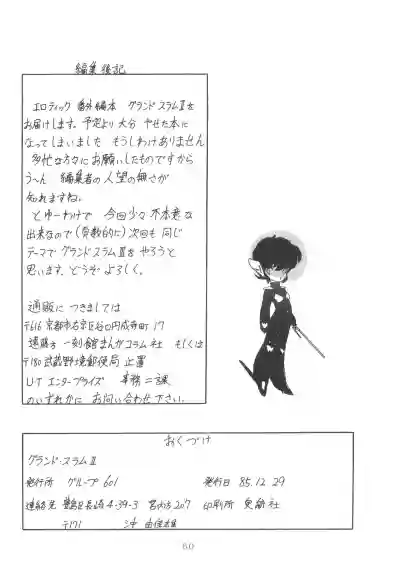 編集後記
エロティック 番外編本 グランドスラムⅡを
お届けします。予定より大分 やせた本に
なってしまいました もうしわけありません
多忙な方々にお願いしたものですから
う〜ん 編集者の人望の無さが
知れますね。
とゆーわけで 今回少々不本意な
出来なので(頁数的に)次回も同じ
テーマでグランドスラムⅢをやろうと
思います。どうぞよろしく。
通販に つきましては
〒616 京都市右京区谷口円成寺町 17
遠藤方 一刻館まんがコラム社 もしくは
〒180 武蔵野境郵便局 止置
U・T エンタープライズ 業務二課
のいずれかに お問い合わせ下さい。
おくづけ
グランド・スラムⅡ
発行所 グループ601 発行日 85.12.29
連絡先 豊島区長崎4-39-3 宮内方207 印刷所
〒171
60